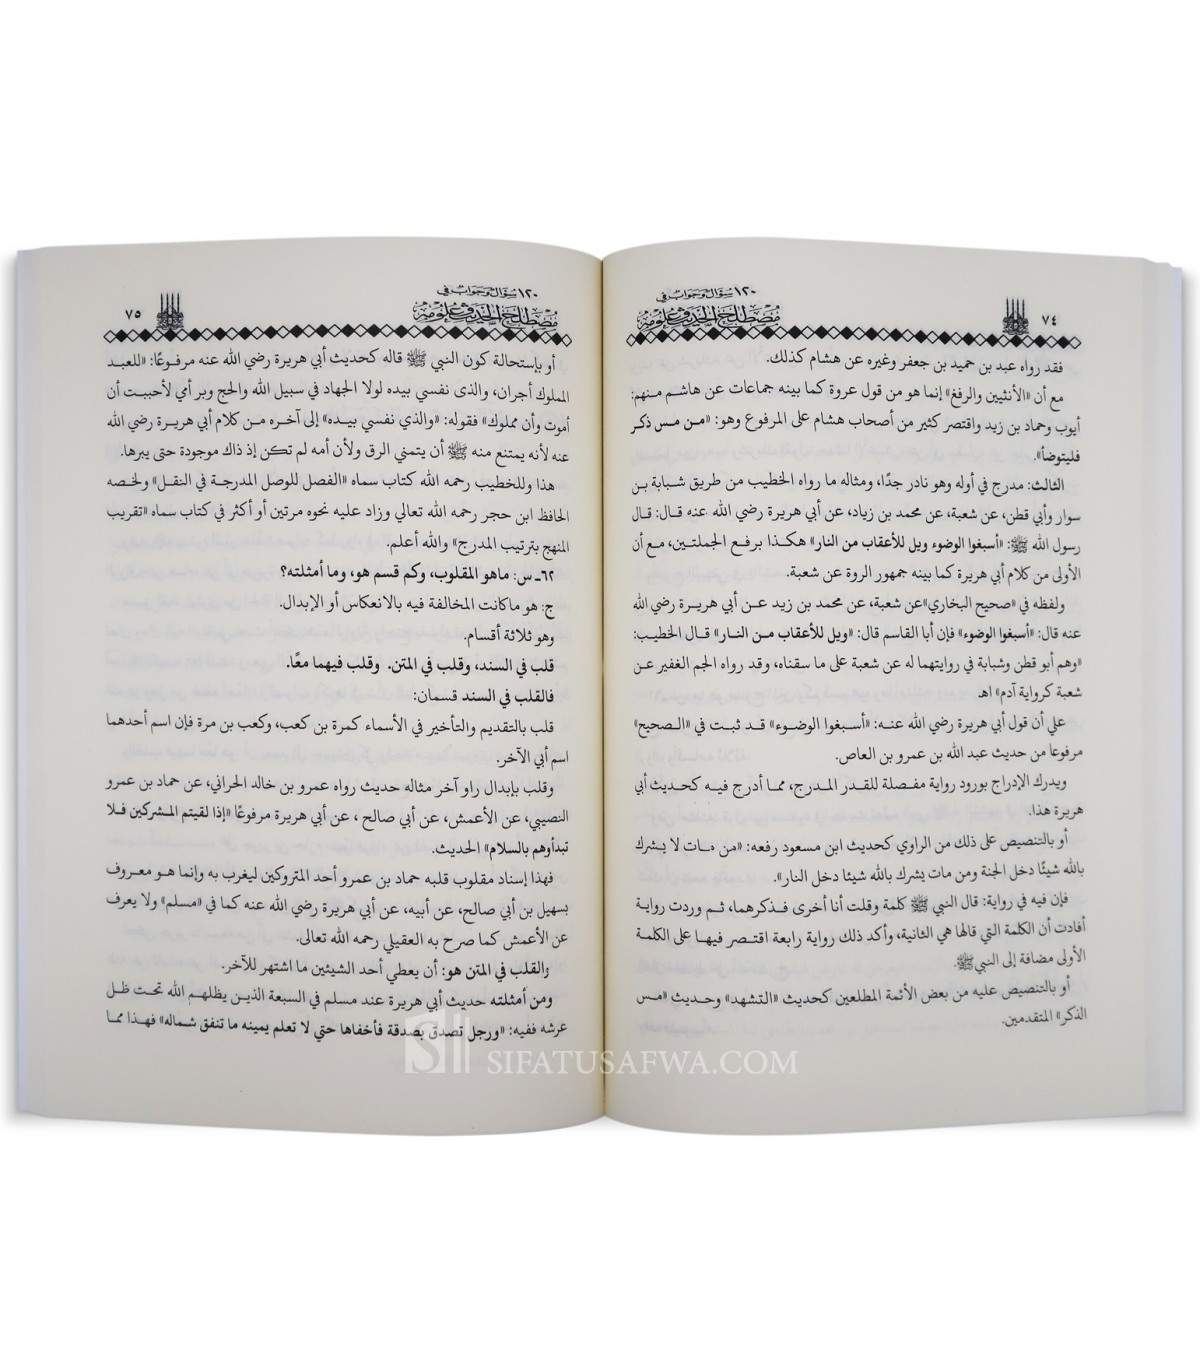 ١٢٠ سؤال وجواب في
مصطلح الحديث وعلومه
٧٤
فقد رواه عبد بن حميد بن جعفر وغيره عن هشام كذلك.
مع أن «الأنثيين والرفغ» إنما هو من قول عروة كما بينه جماعات عن هاشم منهم:
أيوب وحماد بن زيد واقتصر كثير من أصحاب هشام على المرفوع وهو: «من مس ذكر
فليتوضأ».
الثالث: مدرج في أوله وهو نادر جدًا، ومثاله ما رواه الخطيب من طريق شبابة بن
سوار وأبي قطن، عن شعبة، عن محمد بن زياد، عن أبي هريرة رضي الله عنه قال: قال
رسول الله ﷺ: «أسبغوا الوضوء ويل للأعقاب من النار» هكذا برفع الجملتين، مع أن
الأولى من كلام أبي هريرة كما بينه جمهور الروة عن شعبة.
ولفظه في «صحيح البخاري»عن شعبة، عن محمد بن زيد عن أبي هريرة رضي الله
عنه قال: «أسبغوا الوضوء» فإن أبا القاسم قال: «ويل للأعقاب من النار» قال الخطيب:
«وهم أبو قطن وشبابة في روايتهما له عن شعبة على ما سقناه، وقد رواه الجم الغفير عن
شعبة كرواية آدم» اهـ
علي أن قول أبي هريرة رضي الله عنه: «أسبغوا الوضوء» قد ثبت في «الصحيح»
مرفوعا من حديث عبد الله بن عمرو بن العاص.
ويدرك الإدراج بورود رواية مفصلة للقدر المدرج، مما أدرج فيه كحديث أبي
هريرة هذا.
أو بالتنصيص على ذلك من الراوي كحديث ابن مسعود رفعه: «من مات لا يشرك
بالله شيئًا دخل الجنة ومن مات يشرك بالله شيئا دخل النار».
فإن فيه في رواية: قال النبي ﷺ كلمة وقلت أنا أخرى فذكرهما، ثم وردت رواية
أفادت أن الكلمة التي قالها هي الثانية، وأكد ذلك رواية رابعة اقتصر فيها على الكلمة
الأولى مضافة إلى النبي ﷺ.
أو بالتنصيص عليه من بعض الأئمة المطلعين كحديث «التشهد» وحديث «مس
الذكر» المتقدمين.
١٢٠ سؤال وجواب في
مصطلح الحديث وعلومه
٧٥
أو بإستحالة كون النبي ﷺ قاله كحديث أبي هريرة رضي الله عنه مرفوعًا: «للعبد
المملوك أجران، والذى نفسي بيده لولا الجهاد في سبيل الله والحج وبر أمي لأحببت أن
أموت وأن مملوك» فقوله: «والذي نفسي بيده» إلى آخره من كلام أبي هريرة رضي الله
عنه لأنه يمتنع منه ﷺ أن يتمني الرق ولأن أمه لم تكن إذ ذاك موجودة حتى يبرها.
هذا وللخطيب رحمه الله كتاب سماه «الفصل للوصل المدرجة في النقل» ولخصه
الحافظ ابن حجر رحمه الله تعالي وزاد عليه نحوه مرتين أو أكثر في كتاب سماه «تقريب
المنهج بترتيب المدرج» والله أعلم.
٦٢ـ س: ماهو المقلوب، وكم قسم هو، وما أمثلته؟
ج: هو ماكانت المخالفة فيه بالانعكاس أو الإبدال.
وهو ثلاثة أقسام.
قلب في السند، وقلب في المتن. وقلب فيهما معًا.
فالقلب في السند قسمان:
قلب بالتقديم والتأخير في الأسماء كمرة بن كعب، وكعب بن مرة فإن اسم أحدهما
اسم أبي الآخر.
وقلب بإبدال راو آخر مثاله حديث رواه عمرو بن خالد الحراني، عن حماد بن عمرو
النصيبي، عن الأعمش، عن أبي صالح، عن أبي هريرة مرفوعًا «إذا لقيتم المشركين فلا
تبدأوهم بالسلام» الحديث.
فهذا إسناد مقلوب قلبه حماد بن عمرو أحد المتروكين ليغرب به وإنما هو معروف
بسهيل بن أبي صالح، عن أبيه، عن أبي هريرة رضي الله عنه كما في «مسلم» ولا يعرف
عن الأعمش كما صرح به العقيلي رحمه الله تعالى.
والقلب في المتن هو: أن يعطي أحد الشيئين ما اشتهر للآخر.
ومن أمثلته حديث أبي هريرة عند مسلم في السبعة الذين يظلهم الله تحت ظل
عرشه ففيه: «ورجل تصدق بصدقة فأخفاها حتي لا تعلم يمينه ما تنفق شماله» فهذا مما
SIFATUSAFWA.COM